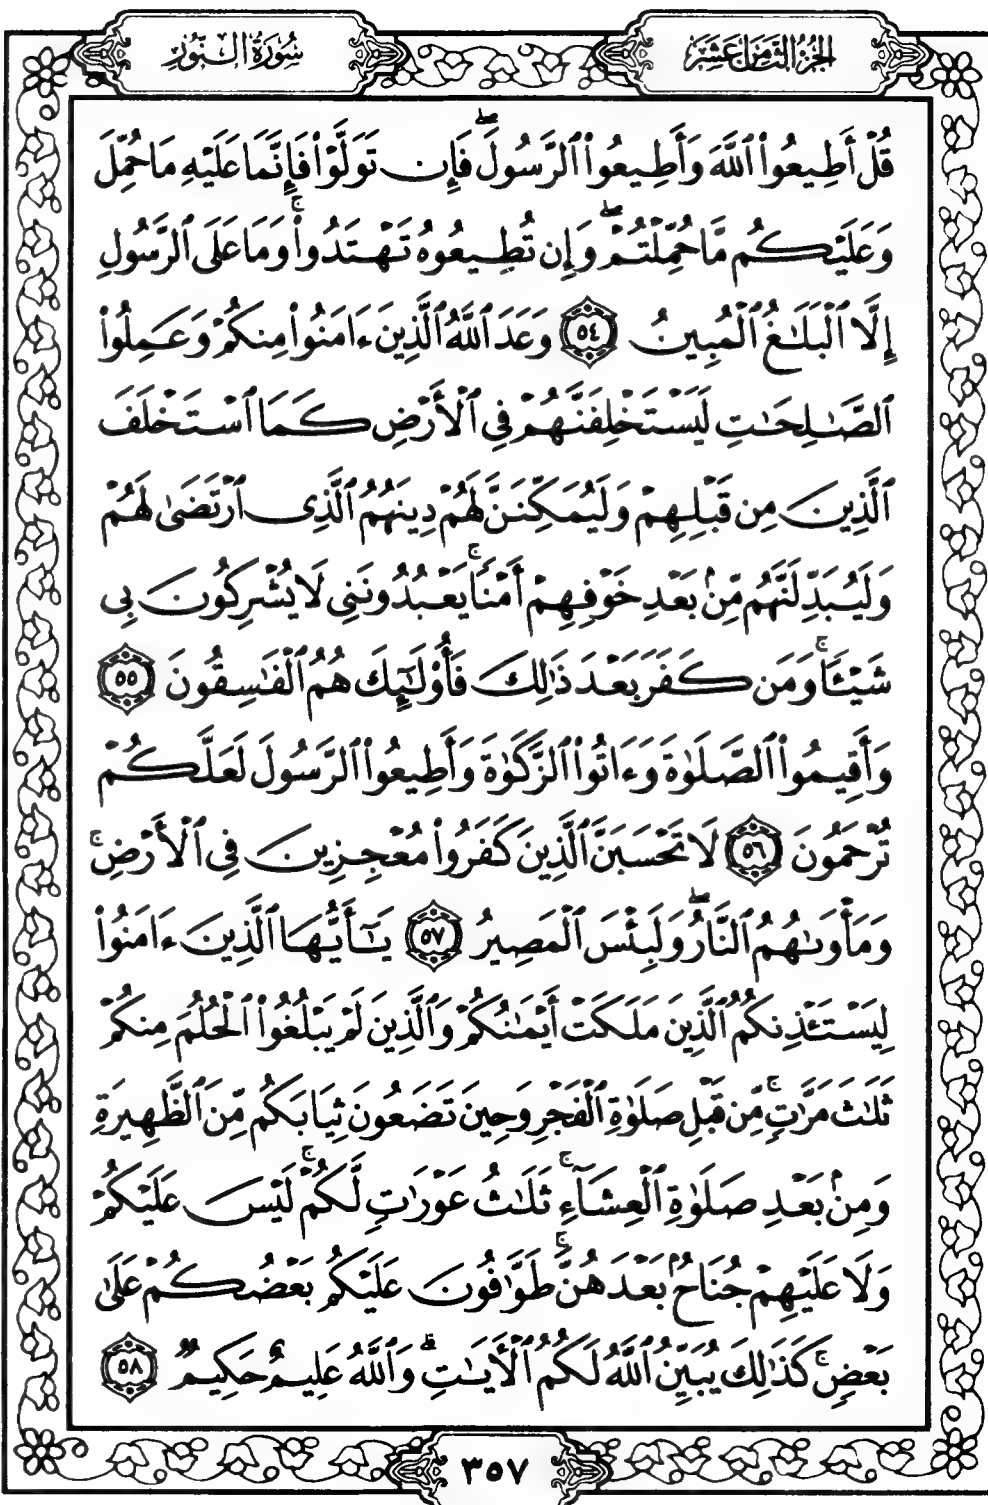 الجُزْءُ الثَّامِنَ عَشَرَ
سُورَةُ النُّورِ
قُلْ أَطِيعُوا۟ ٱللَّهَ وَأَطِيعُوا۟ ٱلرَّسُولَۖ فَإِن تَوَلَّوْا۟ فَإِنَّمَا عَلَيْهِ مَا حُمِّلَ
وَعَلَيْكُم مَّا حُمِّلْتُمْۖ وَإِن تُطِيعُوهُ تَهْتَدُوا۟ۚ وَمَا عَلَى ٱلرَّسُولِ
إِلَّا ٱلْبَلَـٰغُ ٱلْمُبِينُ ٥٤ وَعَدَ ٱللَّهُ ٱلَّذِينَ ءَامَنُوا۟ مِنكُمْ وَعَمِلُوا۟
ٱلصَّـٰلِحَـٰتِ لَيَسْتَخْلِفَنَّهُمْ فِى ٱلْأَرْضِ كَمَا ٱسْتَخْلَفَ
ٱلَّذِينَ مِن قَبْلِهِمْ وَلَيُمَكِّنَنَّ لَهُمْ دِينَهُمُ ٱلَّذِى ٱرْتَضَىٰ لَهُمْ
وَلَيُبَدِّلَنَّهُم مِّنۢ بَعْدِ خَوْفِهِمْ أَمْنًاۚ يَعْبُدُونَنِى لَا يُشْرِكُونَ بِى
شَيْـًٔاۚ وَمَن كَفَرَ بَعْدَ ذَٰلِكَ فَأُو۟لَـٰٓئِكَ هُمُ ٱلْفَـٰسِقُونَ ٥٥
وَأَقِيمُوا۟ ٱلصَّلَوٰةَ وَءَاتُوا۟ ٱلزَّكَوٰةَ وَأَطِيعُوا۟ ٱلرَّسُولَ لَعَلَّكُمْ
تُرْحَمُونَ ٥٦ لَا تَحْسَبَنَّ ٱلَّذِينَ كَفَرُوا۟ مُعْجِزِينَ فِى ٱلْأَرْضِۚ
وَمَأْوَىٰهُمُ ٱلنَّارُۖ وَلَبِئْسَ ٱلْمَصِيرُ ٥٧ يَـٰٓأَيُّهَا ٱلَّذِينَ ءَامَنُوا۟
لِيَسْتَـْٔذِنكُمُ ٱلَّذِينَ مَلَكَتْ أَيْمَـٰنُكُمْ وَٱلَّذِينَ لَمْ يَبْلُغُوا۟ ٱلْحُلُمَ مِنكُمْ
ثَلَـٰثَ مَرَّٰتٍۚ مِّن قَبْلِ صَلَوٰةِ ٱلْفَجْرِ وَحِينَ تَضَعُونَ ثِيَابَكُم مِّنَ ٱلظَّهِيرَةِ
وَمِنۢ بَعْدِ صَلَوٰةِ ٱلْعِشَآءِۚ ثَلَـٰثُ عَوْرَٰتٍ لَّكُمْۚ لَيْسَ عَلَيْكُمْ
وَلَا عَلَيْهِمْ جُنَاحٌۢ بَعْدَهُنَّۚ طَوَّٰفُونَ عَلَيْكُم بَعْضُكُمْ عَلَىٰ
بَعْضٍۚ كَذَٰلِكَ يُبَيِّنُ ٱللَّهُ لَكُمُ ٱلْـَٔايَـٰتِۗ وَٱللَّهُ عَلِيمٌ حَكِيمٌ ٥٨
٣٥٧